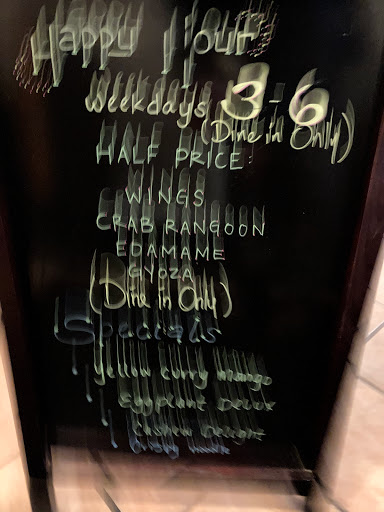 Happy Hour
Weekdays 3-6
(Dine in Only)
HALF PRICE
WINGS
CRAB RANGOON
EDAMAME
GYOZA
(Dine in Only)
Specials
Yellow Curry Mango
Eggplant Delux
Cashew
Crispy